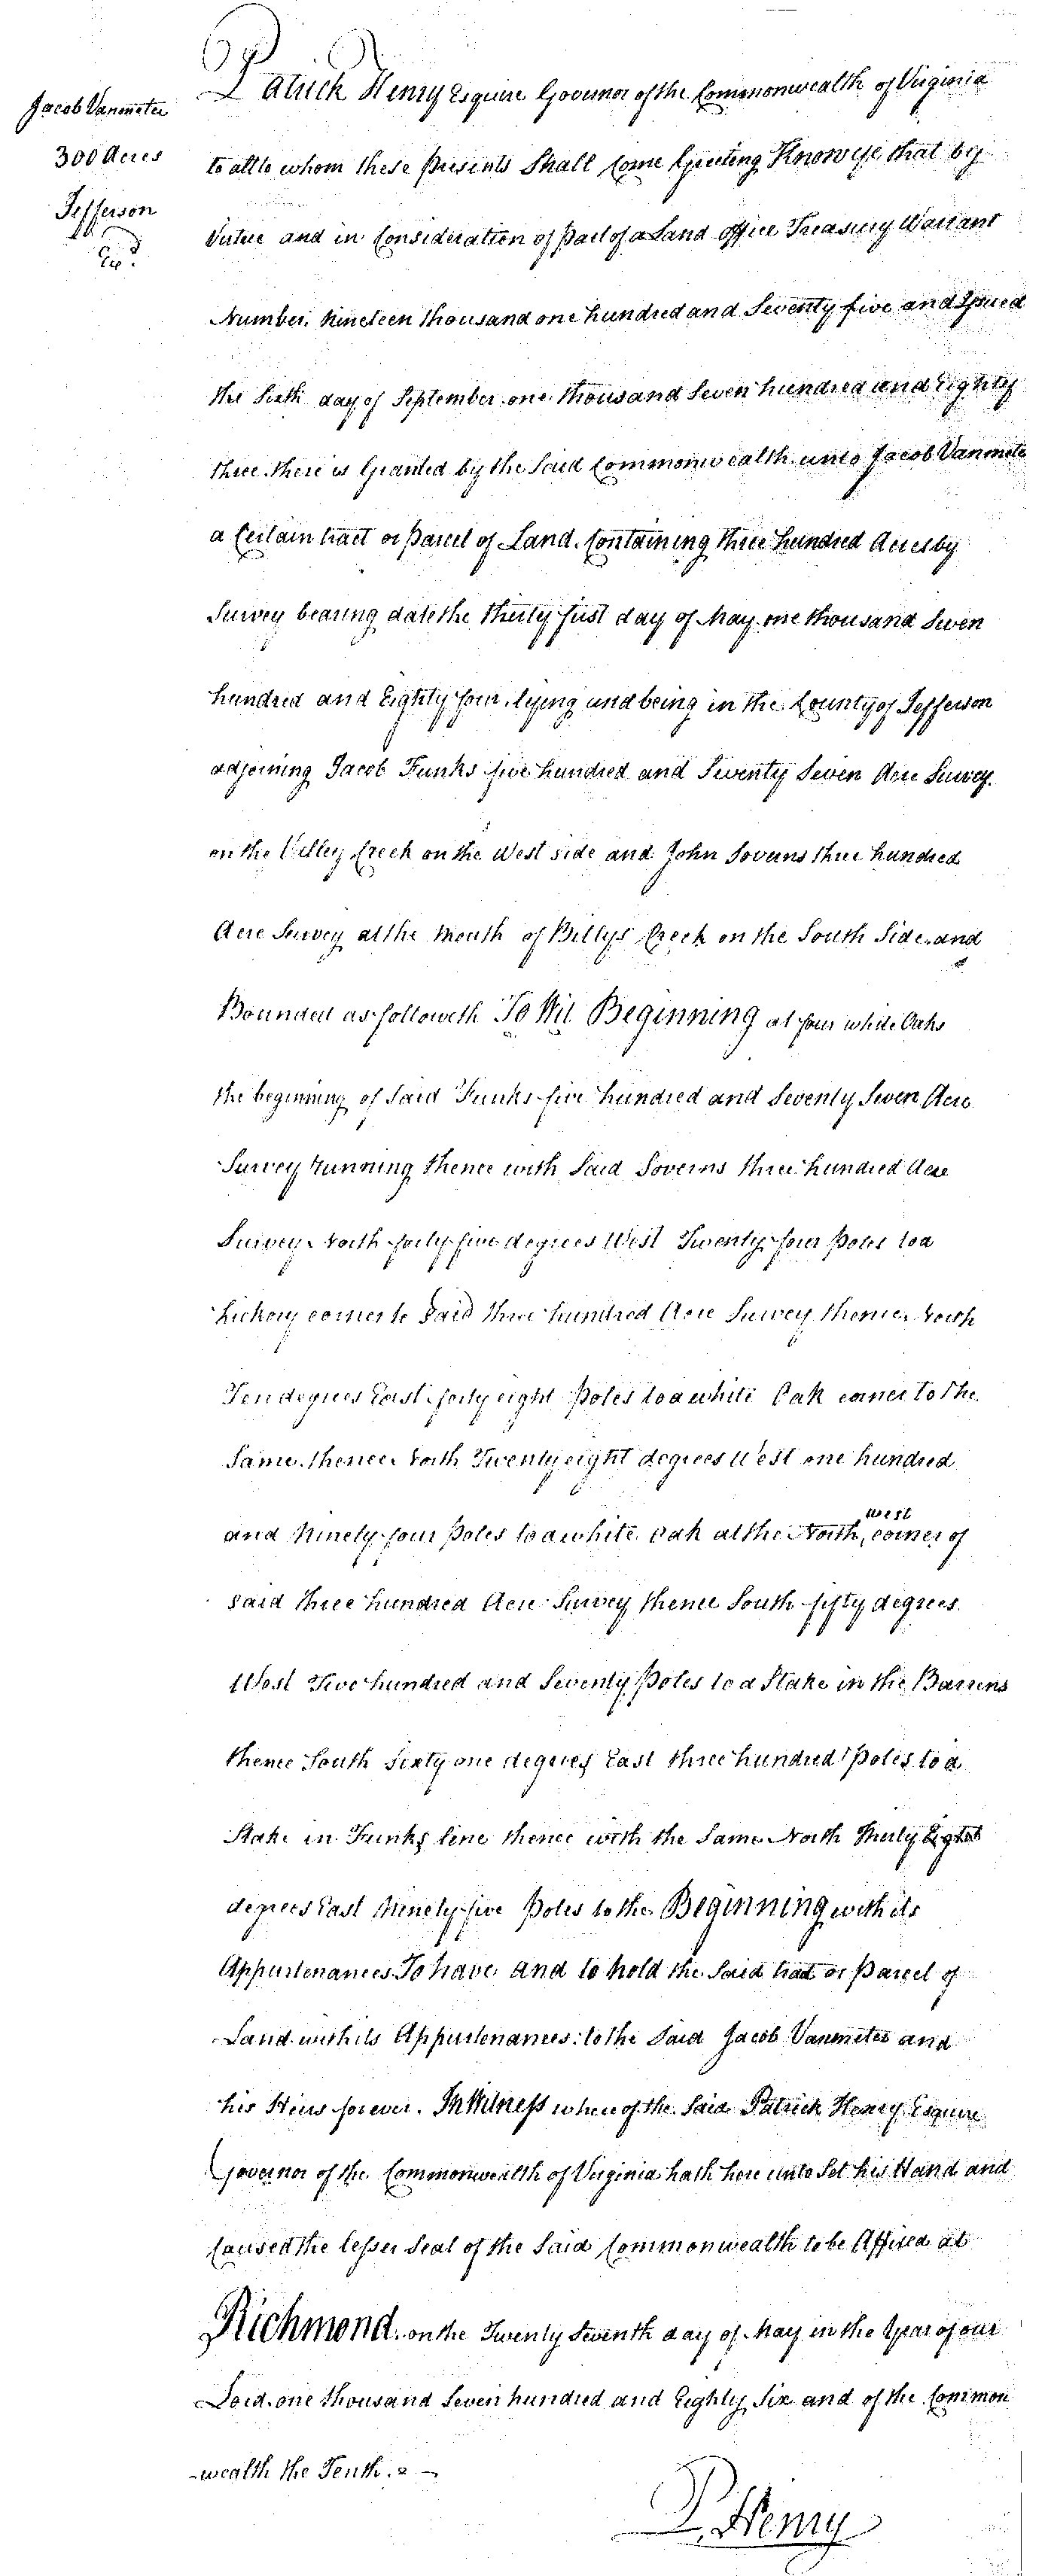 Jacob Vanmeter
300 Acres
Jefferson
Exd
Patrick Henry Esquire Governor of the Commonwealth of Virginia
to all to whom these presents Shall Come Greeting Know ye that by
Virtue and in Consideration of part of a Land office Treasury Warrant
Number, Nineteen thousand one hundred and Seventy five and Issued
the Sixth day of September one thousand Seven hundred and Eighty
three there is Granted by the Said Commonwealth unto Jacob Vanmete
a Certain tract or parcel of Land, Containing three hundred Acres by
Survey bearing date the thirty first day of May one thousand Seven
hundred and Eighty four, lying and being in the County of Jefferson
adjoining Jacob Funks five hundred and Seventy Seven Acre Survey.
on the Valley Creek on the West side and John Soverns three hundred
Acre Survey at the Mouth of Billys Creek on the South Side, and
Bounded as followeth To Wit Beginning at four white Oaks
the beginning of Said Funks five hundred and Seventy Seven Acre
Survey running thence with Said Soverns three hundred Acre
Survey North forty five degrees West Twenty four poles to a
hickory corner to Said three hundred Acre Survey thence North
Ten degrees East forty eight poles to a white Oak corner to the
Same, thence North Twenty eight degrees West one hundred
and Ninety four poles to a white Oak at the North west corner of
said three hundred Acre Survey thence South fifty degrees
West Two hundred and Seventy poles to a Stake in the Barrens
thence South sixty one degrees East three hundred poles to a
Stake in Funks line thence with the Same North thirty Eight
degrees East Ninety five poles to the Beginning with its
Appurtenances To have and to hold the Said tract or parcel of
Land with its Appurtenances to the Said Jacob Vanmeter and
his Heirs forever. In Witness whereof the Said Patrick Henry Esquire
Governor of the Commonwealth of Virginia hath here unto Set his Hand and
Caused the lesser Seal of the Said Commonwealth to be Affixed at
Richmond, on the Twenty Seventh day of May in the Year of our
Lord one thousand Seven hundred and Eighty Six and of the Common
-wealth the Tenth. -
P. Henry